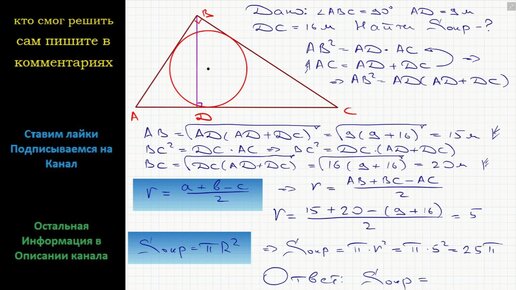 кто смог решить
сам пишите в
комментариях
Ставим лайки
Подписываемся на
Канал
Остальная
Информация в
Описании канала
B
A
D
C
Дано: ∠ABC = 90° AD = 9м
DC = 16м Найти Sокр - ?
AB² = AD · AC
AC = AD + DC ⇒
⇒ AB² = AD(AD + DC)
AB = √AD(AD + DC) = √9(9 + 16) = 15м
BC² = DC · AC ⇒ BC² = DC · (AD + DC)
BC = √DC(AD + DC) = √16(9 + 16) = 20м
r = (a + b - c)/2 ⇒ r = (AB + BC - AC)/2
r = (15 + 20 - (9 + 16))/2 = 5
Sокр = πR² ⇒ Sокр = π · r² = π · 5² = 25π
Ответ: Sокр =